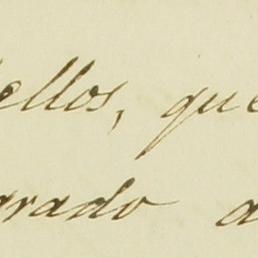 ellos, que
grado a